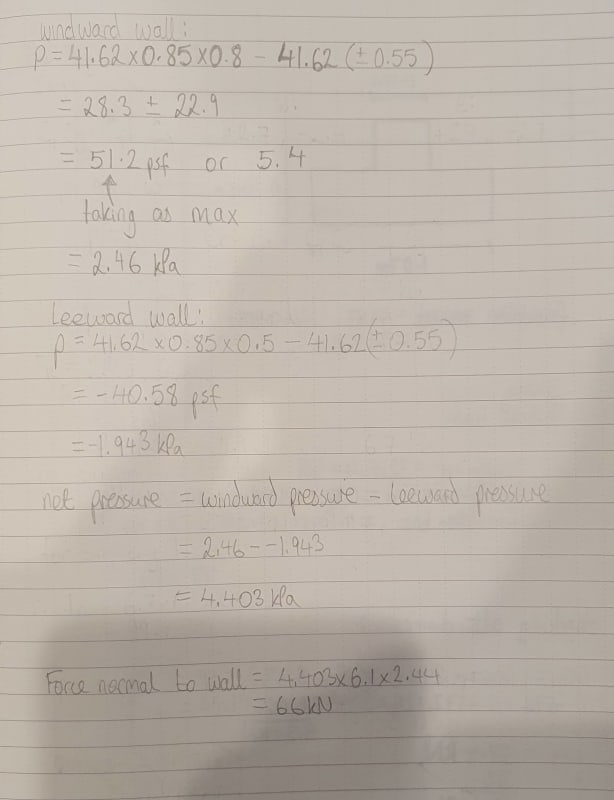 windward wall:
P = 41.62 x 0.85 x 0.8 - 41.62 (± 0.55)
= 28.3 ± 22.9
= 51.2 psf or 5.4
↑
taking as max
= 2.46 kPa
Leeward wall:
P = 41.62 x 0.85 x 0.5 - 41.62 (± 0.55)
= -40.58 psf
= -1.943 kPa
net pressure = windward pressure - Leeward pressure
= 2.46 - -1.943
= 4.403 kPa
Force normal to wall = 4.403 x 6.1 x 2.44
= 66 kN